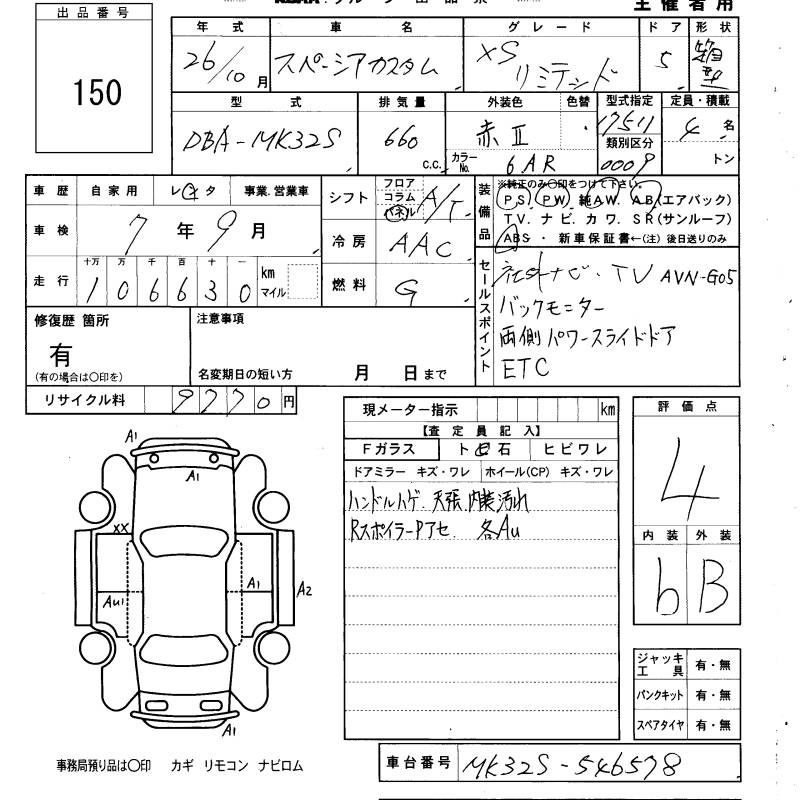 出品番号
150
主催者用
年式 車名 グレード ドア 形状
26/10月 スペーシアカスタム XSリミテッド 5 箱型
型式 排気量 外装色 色替 型式指定 定員・積載
DBA-MK32S 660 c.c. 赤II 17511 4名
類別区分
カラーNo. 6AR 0009 トン
車歴 自家用 レンタ 事業.営業車
車検 7年9月
走行 十万 万 千 百 十 一
106630 km マイル
シフト フロア コラム パネル A/T
冷房 AAC
燃料 G
装備品
※純正のみ〇印をつけて下さい。
PS PW 純AW. AB(エアバック)
TV. ナビ. カワ. SR(サンルーフ)
ABS・ 新車保証書←(注) 後日送りのみ
セールスポイント
社外ナビ・TV AVN-G05
バックモニター
両側パワースライドドア
ETC
修復歴 箇所
有
(有の場合は〇印を)
注意事項
名変期日の短い方 月 日まで
リサイクル料 9770円
現メーター指示 km
【査定員記入】
Fガラス ト石 ヒビワレ
ドアミラー キズ・ワレ ホイール(CP) キズ・ワレ
ハンドルハゲ. 天張. 内装汚れ
RスポイラーPアセ. 各Au
評価点
4
内装 外装
b B
A1
A1
XX
A1
A2
Au1
A1
ジャッキ工具 有・無
パンクキット 有・無
スペアタイヤ 有・無
事務局預り品は〇印 カギ リモコン ナビロム
車台番号 MK32S-546578